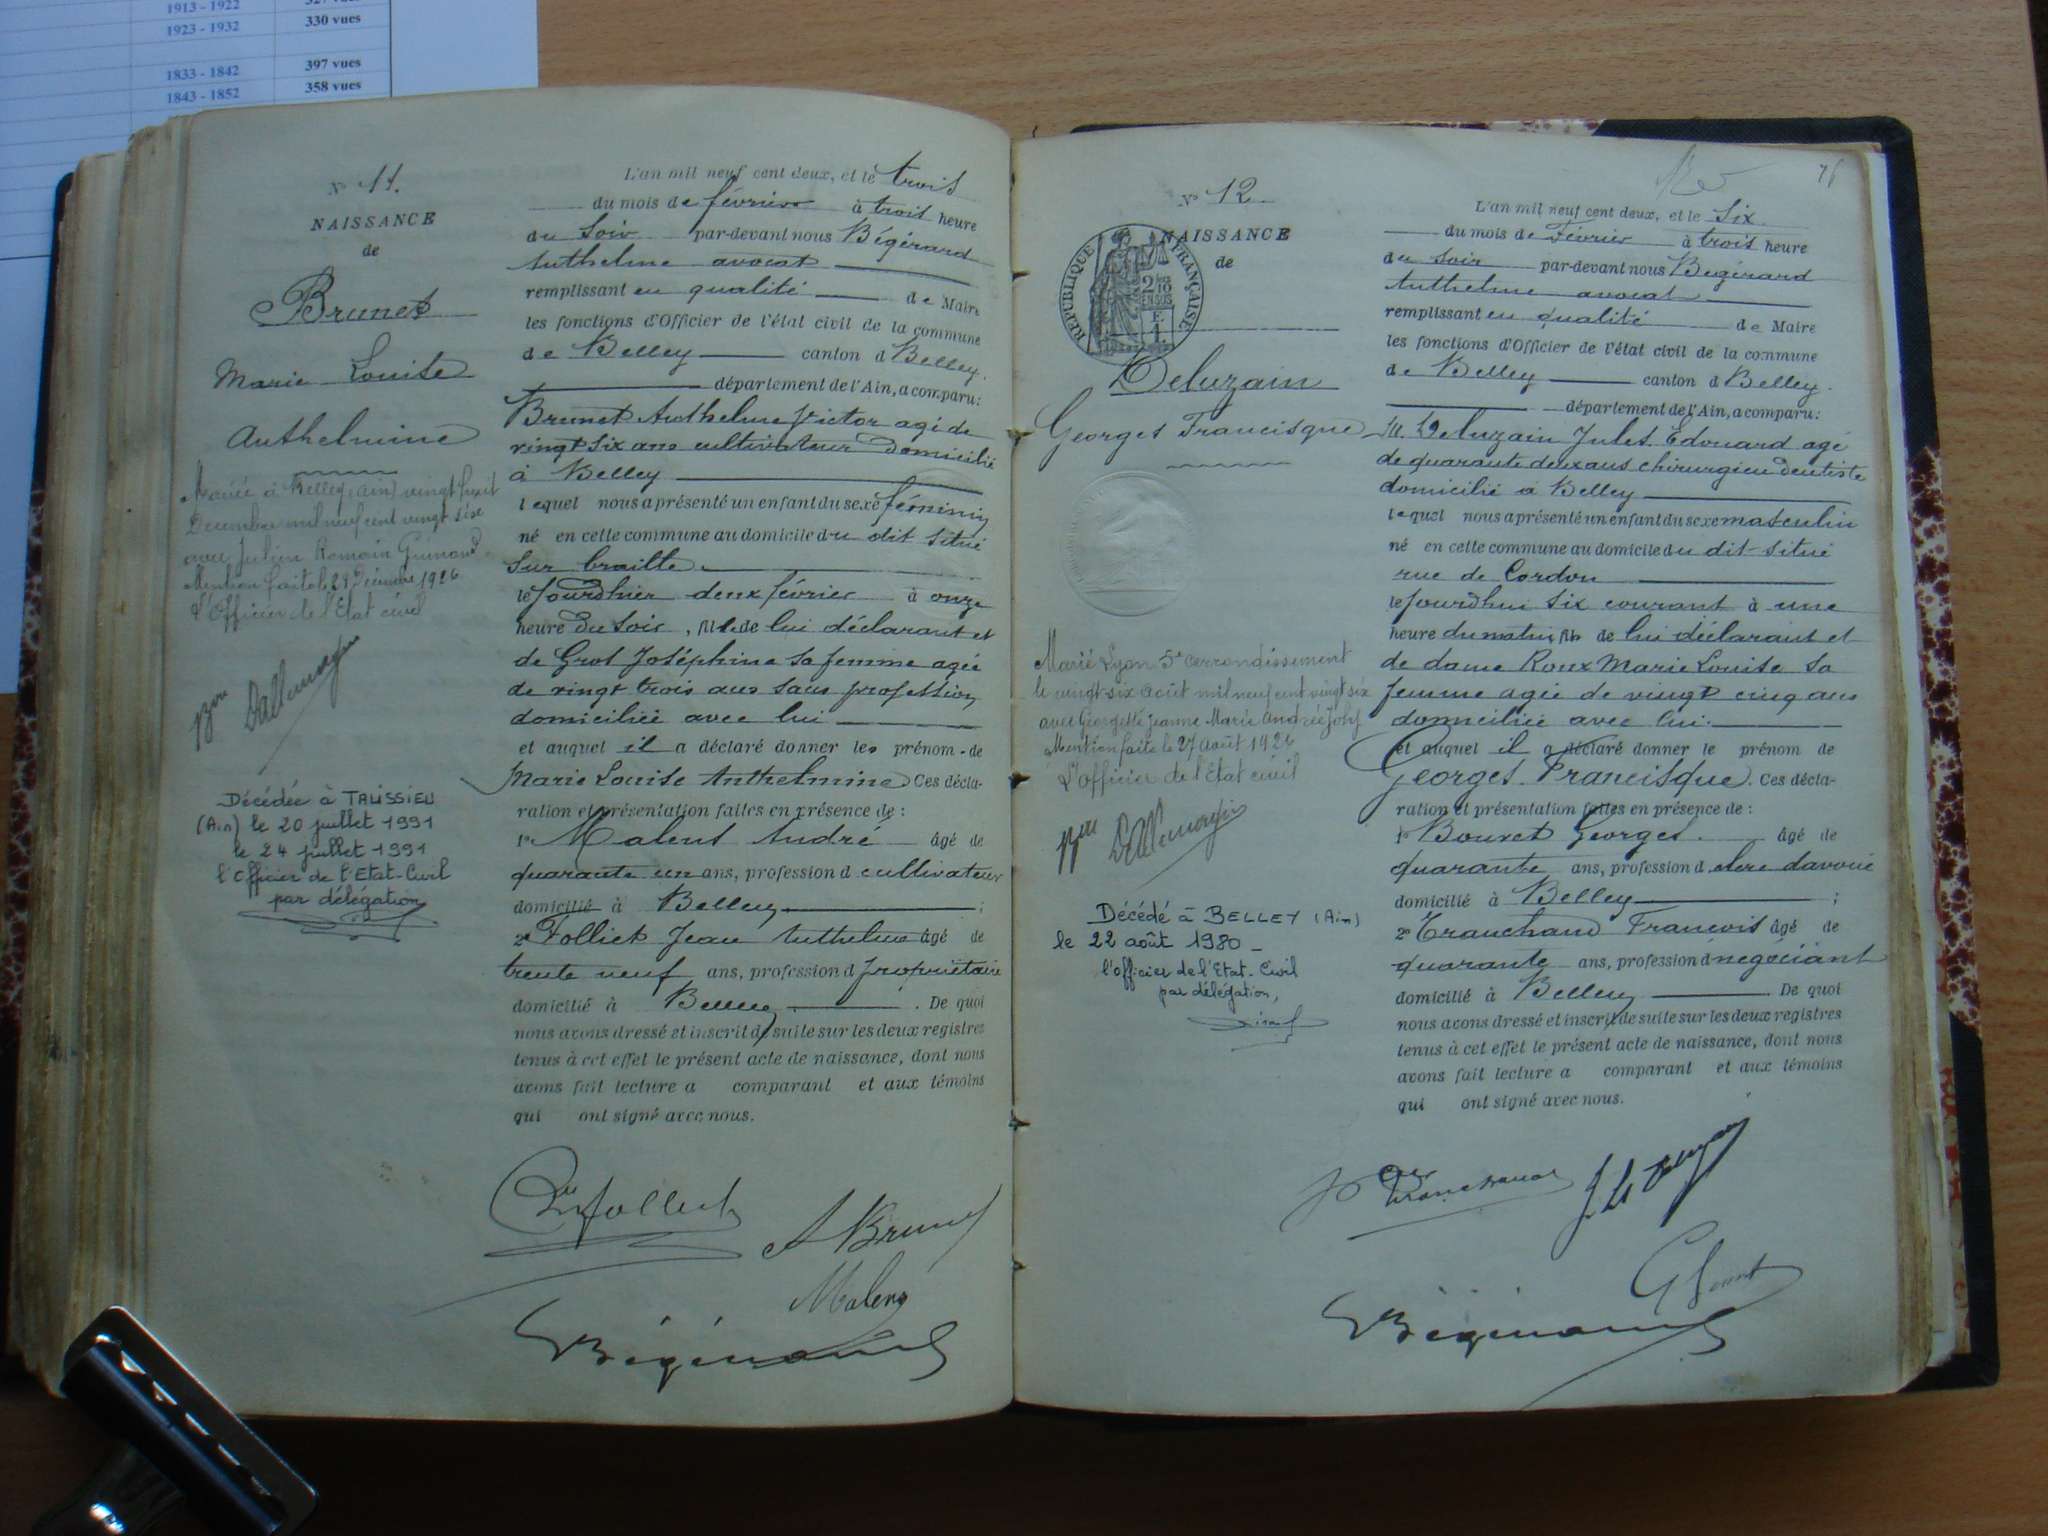 1913 - 1922
1923 - 1932 330 vues
1833 - 1842 397 vues
1843 - 1852 358 vues
N° 11.
NAISSANCE
de
Brunet
Marie Louise
Anthelmine
Mariée à Belley (Ain) vingt huit
Décembre mil neuf cent vingt six
avec Julien Romain Guinand
Mention faite le 29 Décembre 1926
L'Officier de l'Etat civil
Décédée à TALISSIEU
(Ain) le 20 juillet 1991
le 24 juillet 1991
l'Officier de l'Etat-Civil
par délégation
L'an mil neuf cent deux, et le trois
du mois de février à trois heure
du soir par-devant nous Bégérard
Anthelme avocat
remplissant en qualité de Maire
les fonctions d'Officier de l'état civil de la commune
de Belley canton d Belley.
département de l'Ain, a comparu:
Brunet Anthelme Victor agé de
vingt six ans cultivateur domicilié
à Belley
lequel nous a présenté un enfant du sexe féminin
né en cette commune au domicile du dit situé
sur
le jourdhier deux février à onze
heure du soir, fille de lui déclarant et
de Grot Joséphine sa femme agée
de vingt trois ans sans profession
domiciliée avec lui
et auquel il a déclaré donner les prénom-de
Marie Louise Anthelmine Ces décla-
ration et présentation faites en présence de :
1° Malent André âgé de
quarante un ans, profession d cultivateur
domicilié à Belley ;
2° Folliet Jean Anthelme âgé de
trente neuf ans, profession d propriétaire
domicilié à Belley . De quoi
nous avons dressé et inscrit de suite sur les deux registres
tenus à cet effet le présent acte de naissance, dont nous
avons fait lecture a comparant et aux témoins
qui ont signé avec nous.
Folliet
A Brunet
Malent
Bégérard
N° 12
NAISSANCE
de
REPUBLIQUE FRANÇAISE
2/10 EN SUS
Deluzain
Georges Francisque
Marié Lyon 5e arrondissement
le vingt-six Août mil neuf cent vingt six
avec Georgette Jeanne Marie Andrée
Mention faite le 27 Août 1926
L'officier de l'Etat civil
Décédé à BELLEY (Ain)
le 22 août 1980 -
l'officier de l'Etat-Civil
par délégation,
L'an mil neuf cent deux, et le six
du mois de Février à trois heure
du soir par-devant nous Bégérard
Anthelme avocat
remplissant en qualité de Maire
les fonctions d'Officier de l'état civil de la commune
de Belley canton d Belley.
département de l'Ain, a comparu:
M. Deluzain Jules Edouard agé
de quarante deux ans chirurgien dentiste
domicilié à Belley
lequel nous a présenté un enfant du sexe masculin
né en cette commune au domicile du dit situé
rue de Cordon
le jourdhui six courant à une
heure du matin, fils de lui déclarant et
de dame Roux Marie Louise sa
femme agée de vingt cinq ans
domiciliée avec lui.
et auquel il a déclaré donner le prénom de
Georges Francisque. Ces décla-
ration et présentation faites en présence de :
1° Bouvet Georges. âgé de
quarante ans, profession d clerc davoué
domicilié à Belley ;
2° Tranchand François âgé de
quarante ans, profession d négociant
domicilié à Belley . De quoi
nous avons dressé et inscrit de suite sur les deux registres
tenus à cet effet le présent acte de naissance, dont nous
avons fait lecture a comparant et aux témoins
qui ont signé avec nous.
Tranchand
G Bouvet
Bégérard